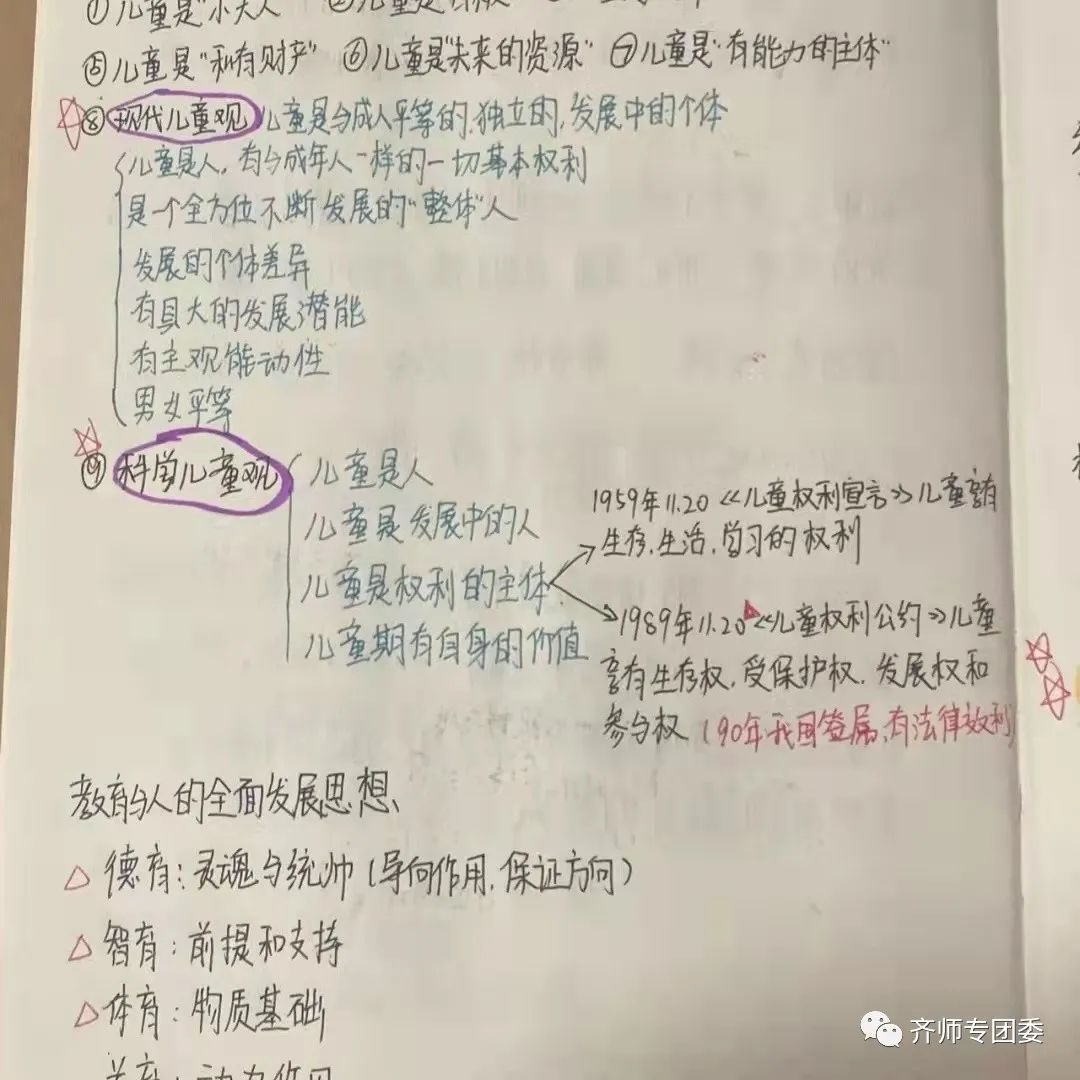 ①儿童是"小大人"
⑤儿童是"私有财产" ⑥儿童是"未来的资源" ⑦儿童是"有能力的主体"
⑧现代儿童观 儿童是与成人平等的、独立的、发展中的个体
儿童是人,有与成年人一样的一切基本权利
是一个全方位不断发展的"整体"人
发展的个体差异
有具大的发展潜能
有主观能动性
男女平等
⑨科学儿童观
儿童是人
儿童是发展中的人
儿童是权利的主体
儿童期有自身的价值
1959年11.20《儿童权利宣言》儿童享有
生存、生活、学习的权利
1989年11.20《儿童权利公约》儿童
享有生存权、受保护权、发展权和
参与权(90年我国签属,有法律效利)
教育与人的全面发展思想、
△ 德育:灵魂与统帅(导向作用,保证方向)
△ 智育:前提和支持
△ 体育:物质基础
齐师专团委